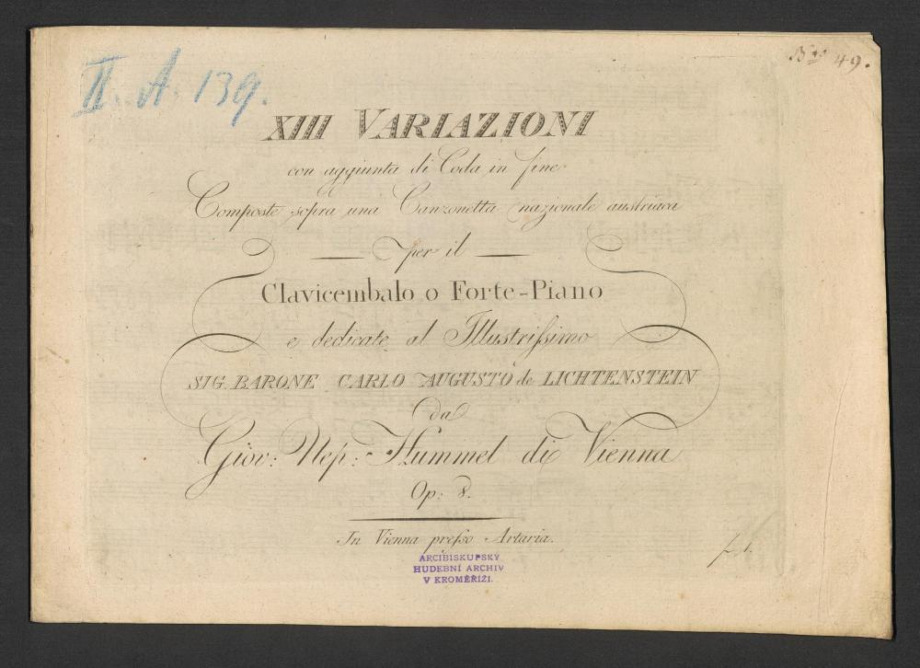 II. A. 139.
49.
XIII VARIAZIONI
con aggiunta di Coda in fine
Composte sopra una Canzonetta nazionale austriaca
per il
Clavicembalo o Forte-Piano
e dedicate al Illustrissimo
SIG. BARONE CARLO AUGUSTO de LICHTENSTEIN
da
Giov: Nep: Hummel di Vienna
Op: 8.
In Vienna presso Artaria.
f. 1.
ARCIBISKUPSKÝ
HUDEBNÍ ARCHIV
V KROMĚŘÍŽI.